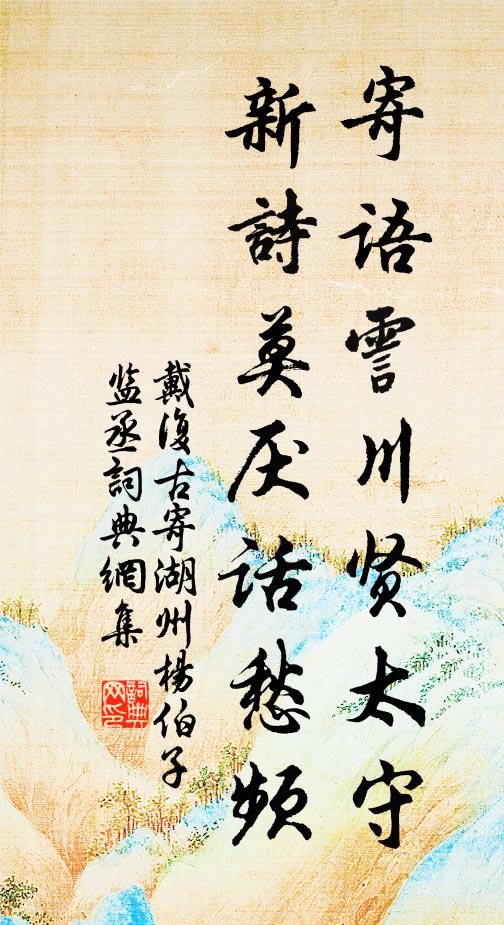 寄语霅川贤太守
新詩莫厌话愁频
戴復古寄湖州楊伯子
监丞詞典網集
詞典